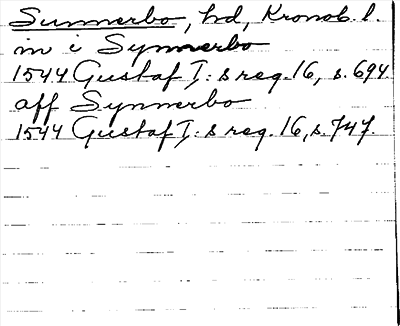 Sunnerbo, hd, Kronob. l.
in i Synnerbo
1544 Gustaf I: s reg. 16, s. 694
aff Synnerbo
1544 Gustaf I: s reg. 16, s. 747.